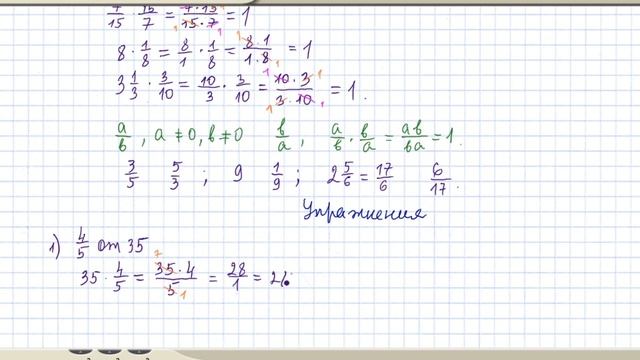 7/15 · 15/7 = 7·15/15·7 = 1
8 · 1/8 = 8/1 · 1/8 = 8·1/1·8 = 1
3 1/3 · 3/10 = 10/3 · 3/10 = 10·3/3·10 = 1.
a/b, a ≠ 0, b ≠ 0 b/a, a/b · b/a = ab/ba = 1.
3/5 5/3 ; 9 1/9 ; 2 5/6 = 17/6 6/17.
Упражнения
1) 4/5 от 35
35 · 4/5 = 35·4/5 = 28/1 = 28